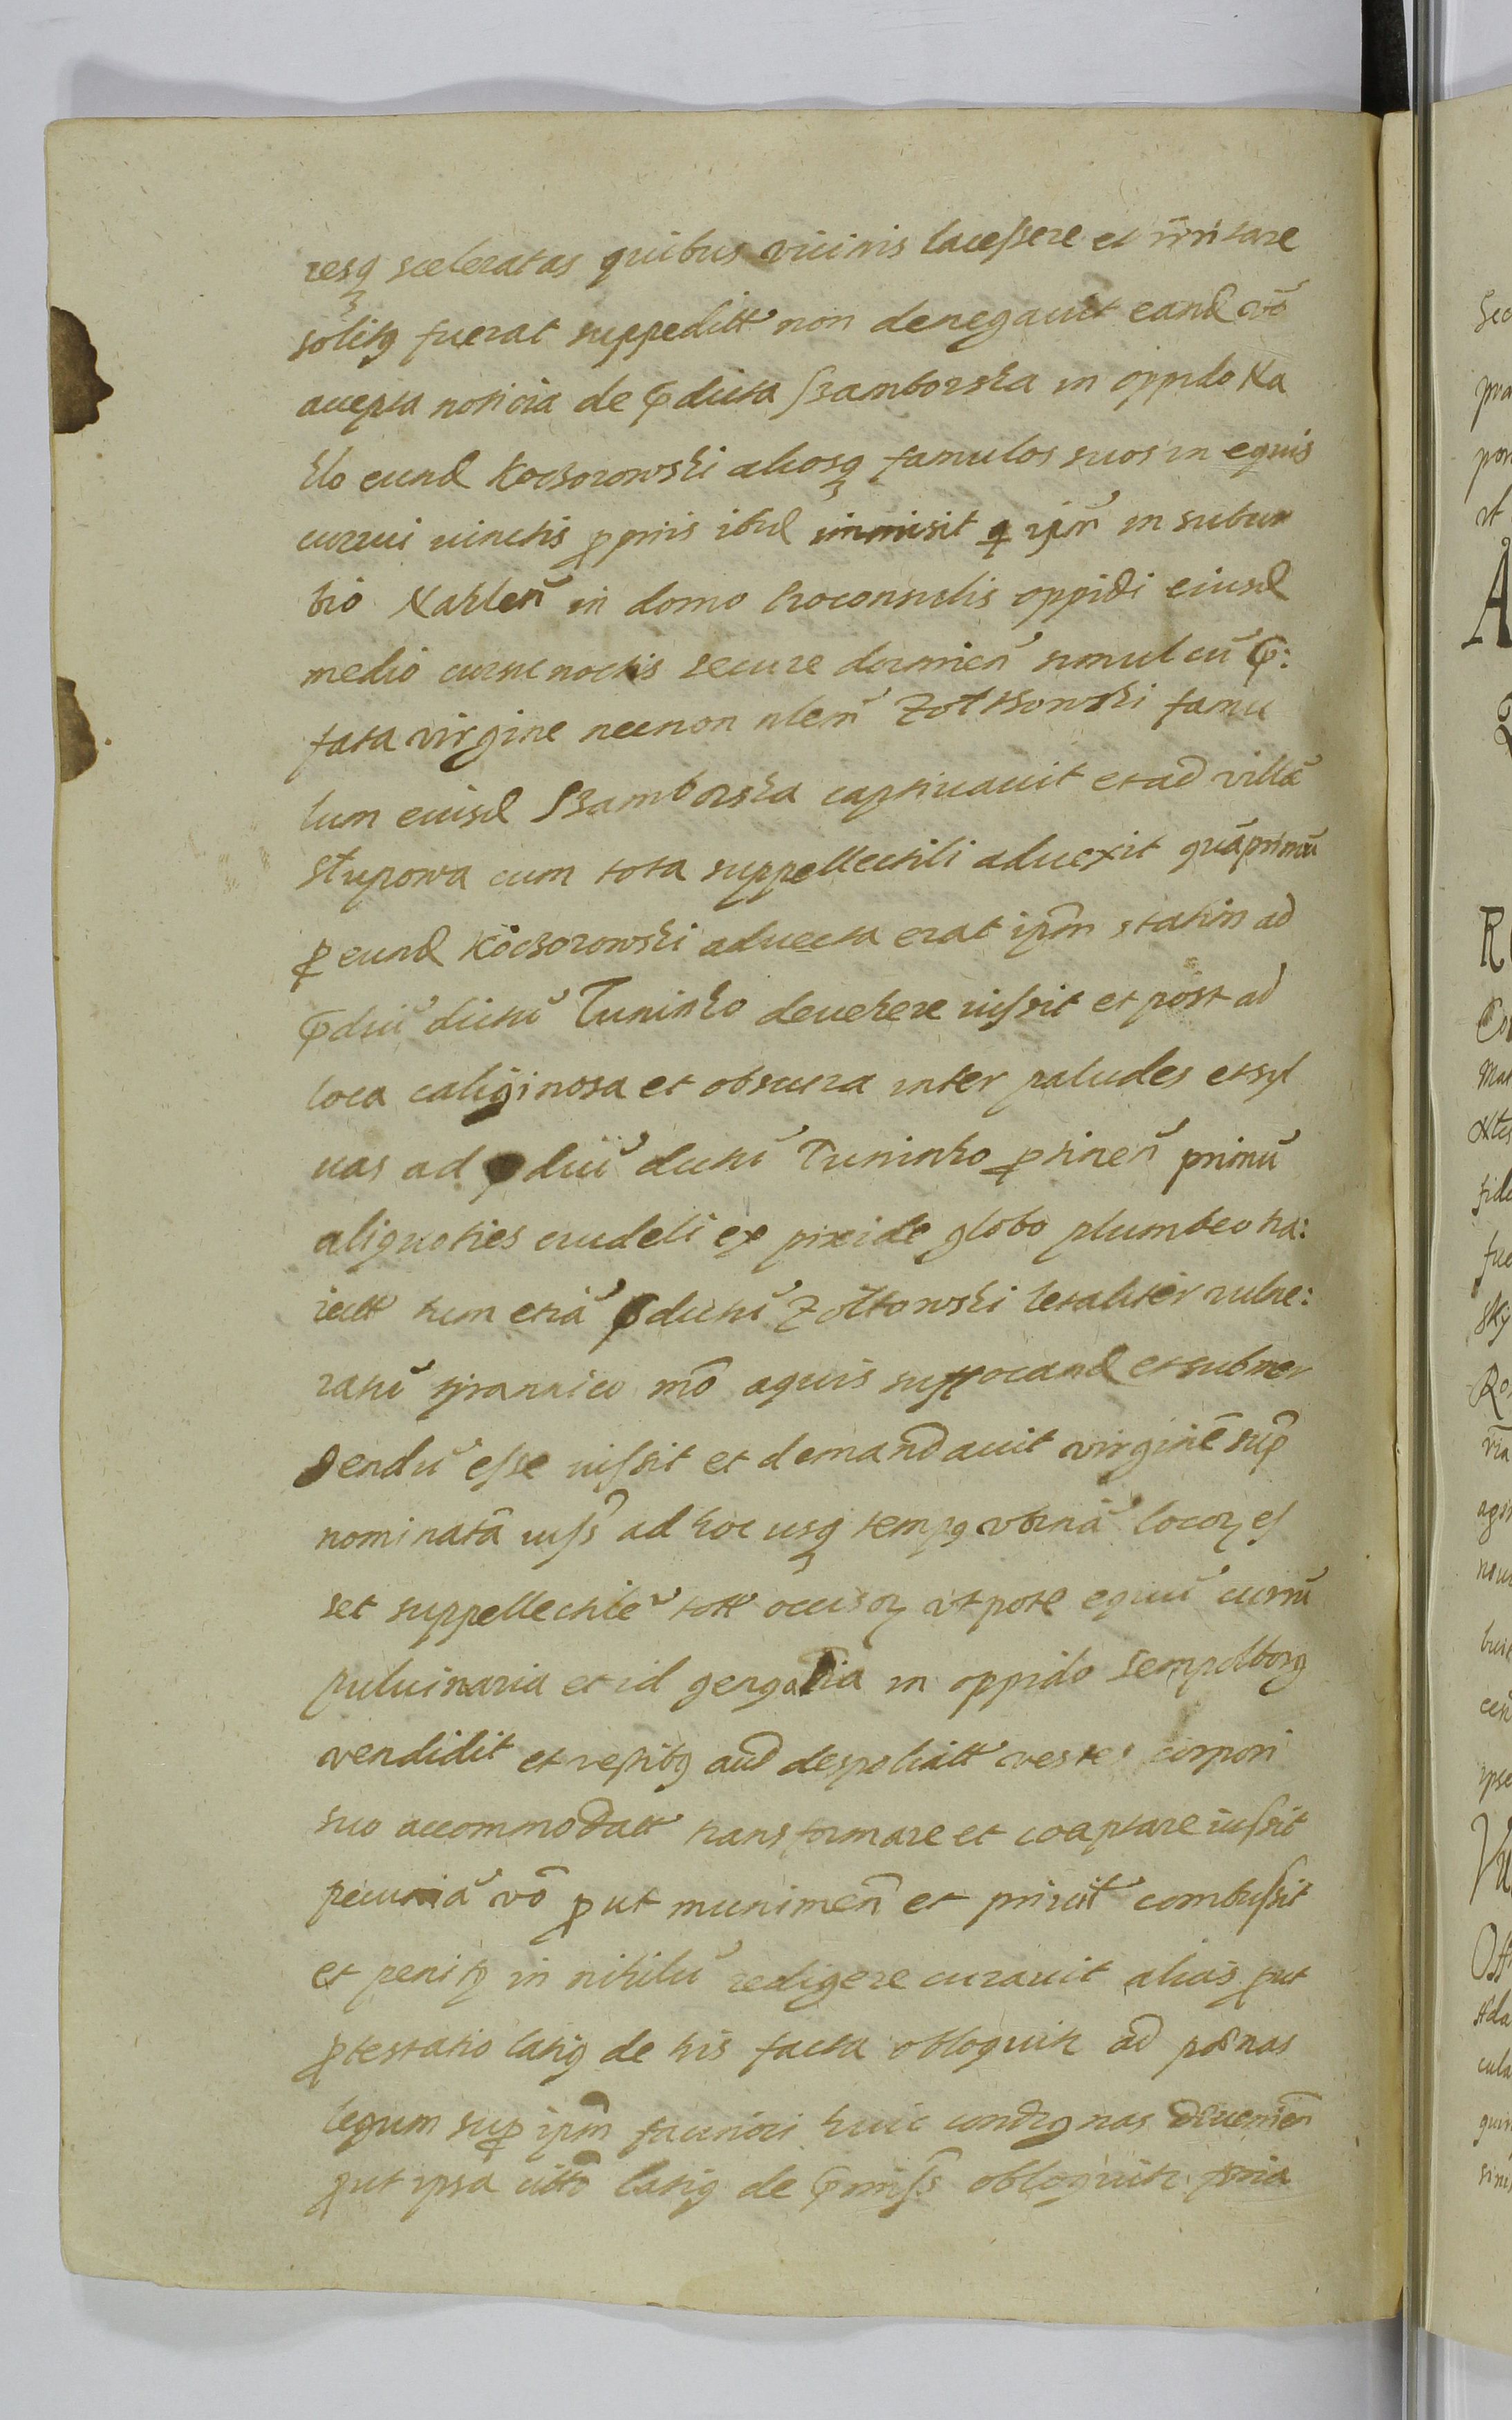 resq sceleratas quibus vicinis lacessere et irritare
solitq fuerat suppeditt non denegauit eand vō
accepta noticia de p̄dicta Szamborska in oppido Na
klo eund Koczorowski aliosq famulos suos in equis
currui iunctis ꝓpriis ibid immisit q ipm̄ in subur
bio Naklen̄ in domo Proconsulis oppidi eiusd
medio cursu noctis secure dormien̄ simul cū p̄:
fata virgine necnon nlem̄ Zołtkowski famu
lum eiusd Szamborska captiuauit et ad villā
Słupowa cum tota suppellectili aduexit quā primū
ꝑ eund Koczorowski aduecta erat ipm̄ statim ad
p̄diū dictū Tuninko deuehere iussit et post ad
loca caliginosa et obscura inter paludes et syl
uas ad p̄diū dictū Tuninko ꝑtinen̄ primū
aliquoties crudeli ex pixide globo plumbeo tra:
iectt tum etiā p̄dictū Zołtowski letaliter vulne:
ratū tirannico mō aquis suffocand et submer
gendū esse iussit et demandauit virginē sup̄
nominatā iuss̄ ad hoc usq tempq vbinā locoꝝ es
set suppellectilē tott occisoꝝ vtpote equū currū
puluinaria et id gengalia in oppido Sempolborg
vendidit et vestibq aūd despoliatt vestes corpori
suo accommodatt transformare et coaptare iussit
pecuniā vō ꝓut munimen̄ et priuit combussit
et penitq in nihilū redigere curauit alias ꝓut
ꝓtestatio latiq de his facta obloquitr ad pœnas
legum sup̄ ipm̄ facinori huic condignas deuenien̄
ꝓut ipsa citto latiq de p̄miss̄ obloquitr